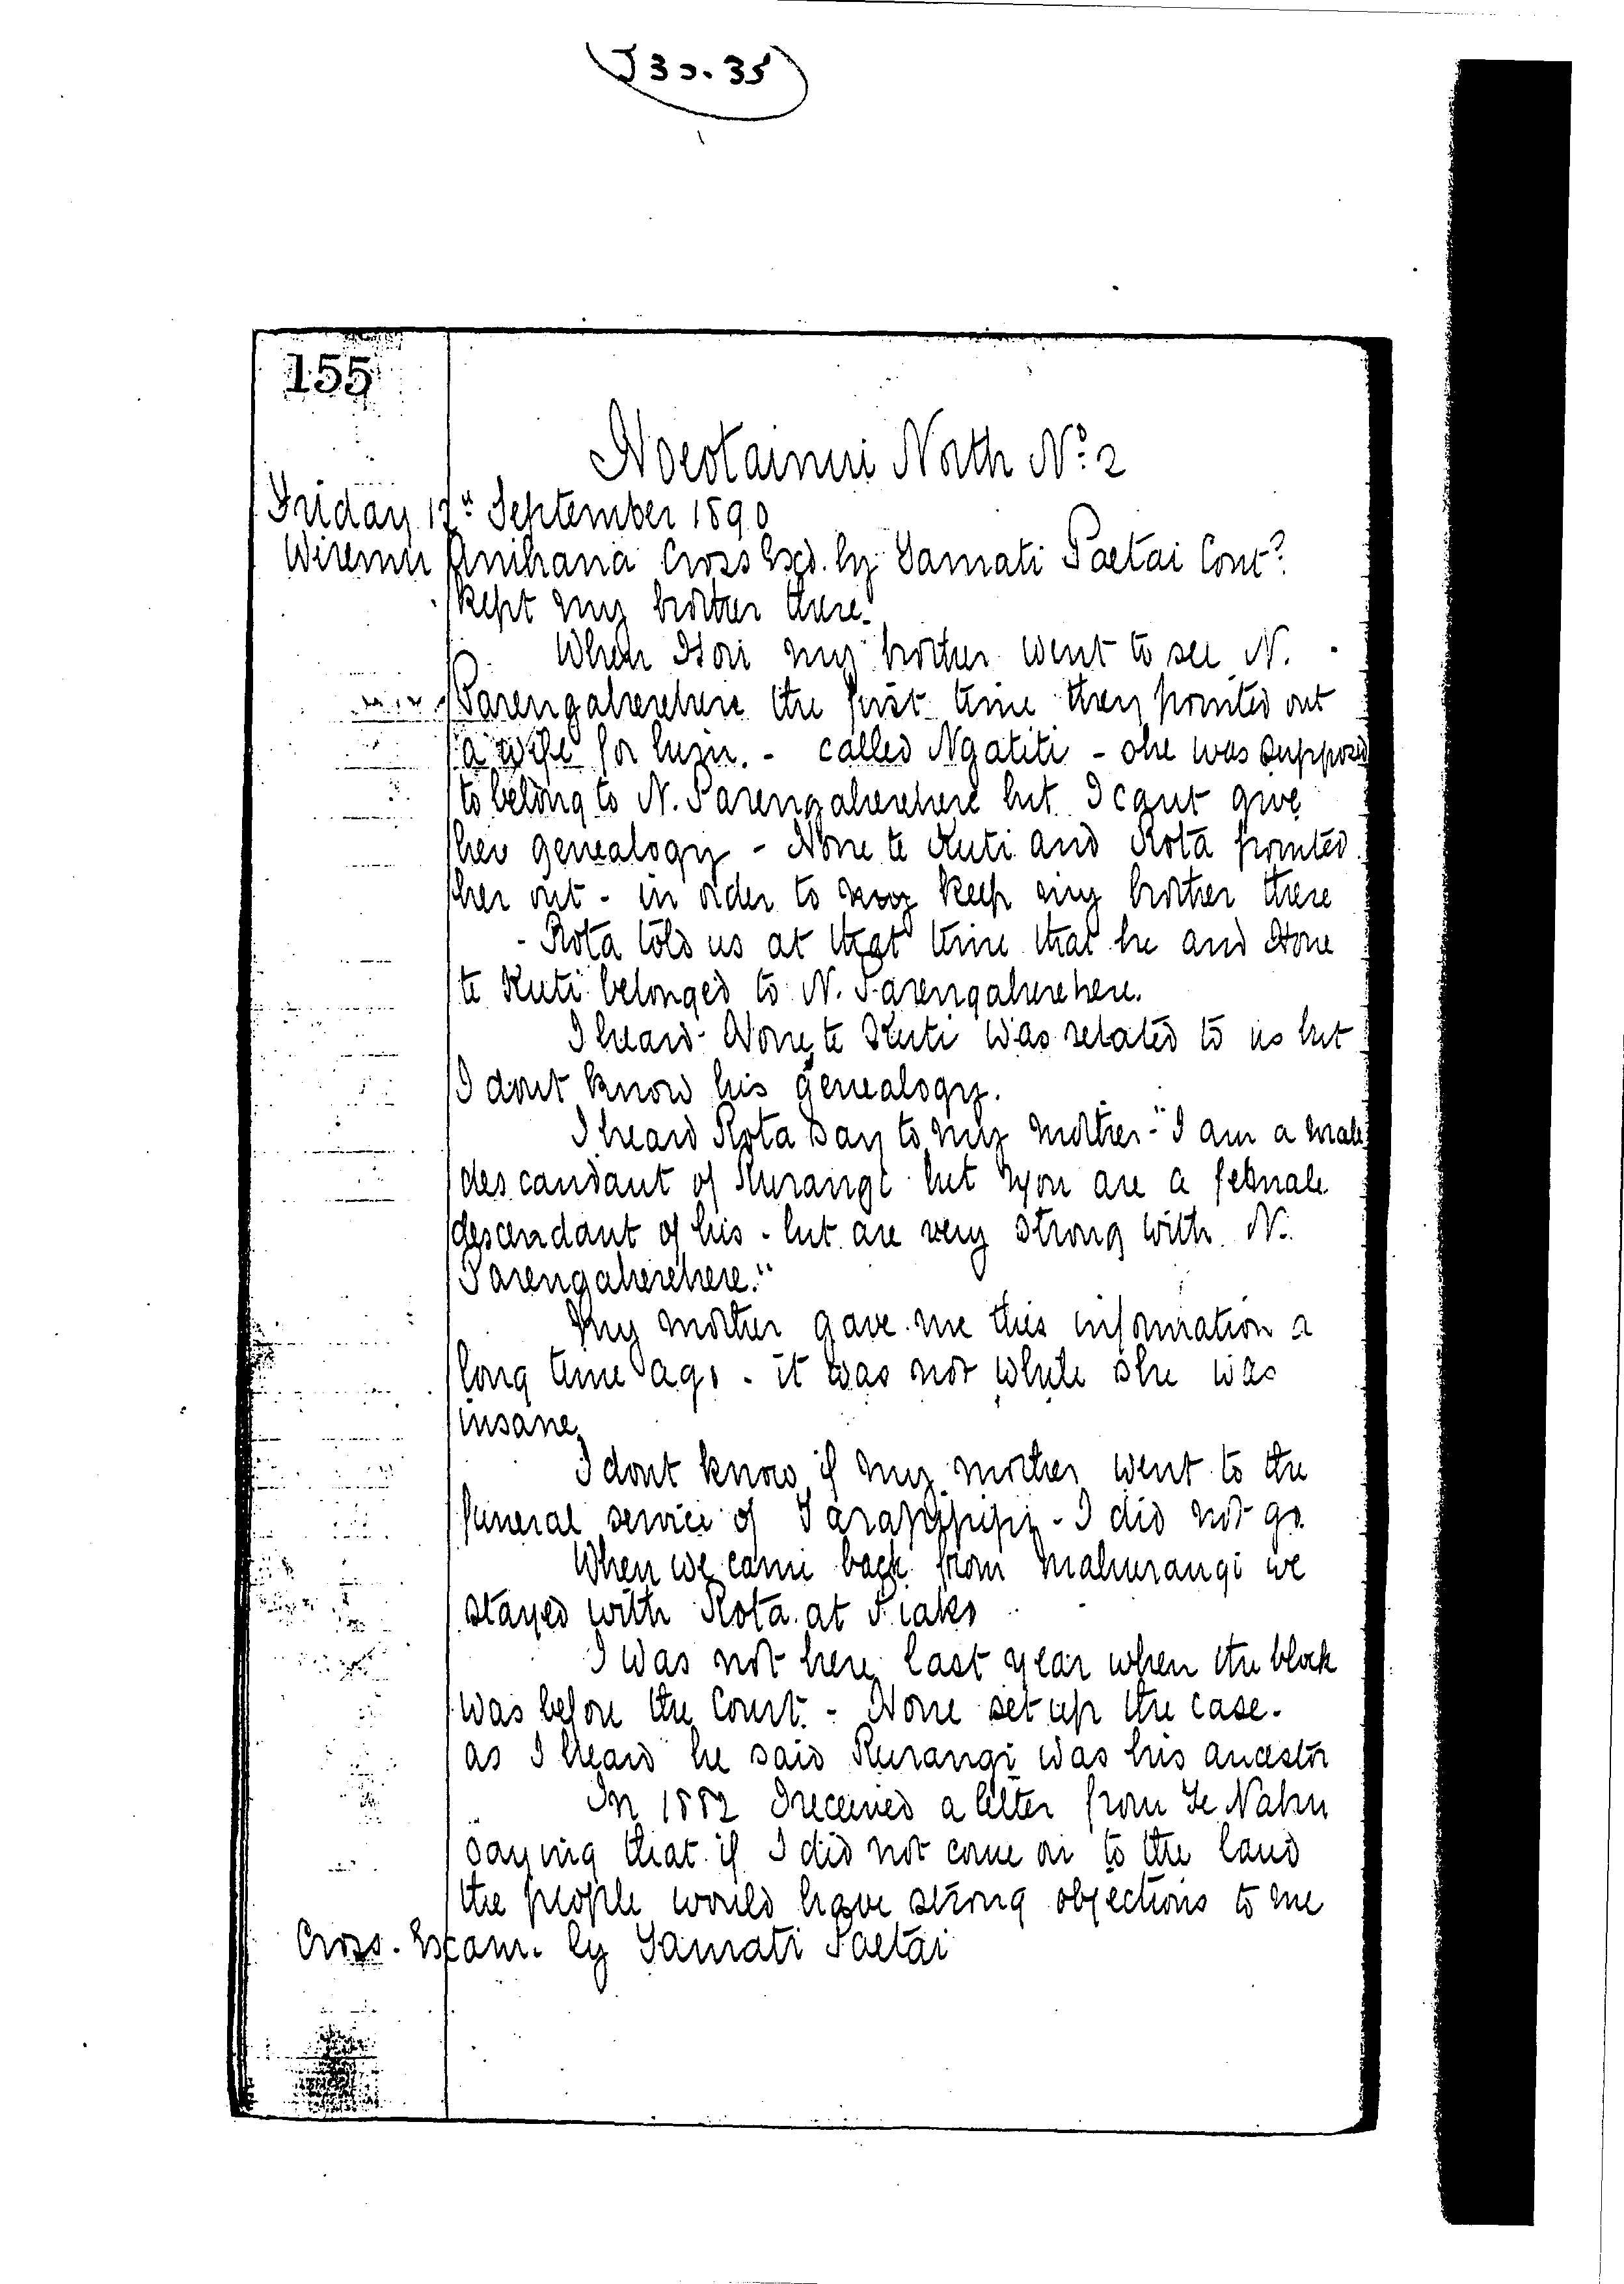 J 30.35
155
Hoeotainui North No 2
Friday 12th September 1890
Wiremu Anihana Cross Exd. by Tamati Paetai Cont?
kept my brother there.
When Hori my brother went to see N.
Parengaherehere the first time they pointed out
a wife for him. - called Ngatiti - she was supposed
to belong to N. Parengaherehere but I cant give
her genealogy - Hone te Kuti and Rota pointed
her out - in order to keep my brother there
- Rota told us at that time that he and Hone
te Kuti belonged to N. Parengaherehere.
I heard Hone te Kuti was related to us but
I dont know his genealogy.
I heard Rota say to my mother - "I am a male
descandant of Rurangi but you are a female
descendant of his - but are very strong with N.
Parengaherehere."
My mother gave me this information a
long time ago - it was not while she was
insane.
I dont know if my mother went to the
funeral service of Tarapipipi - I did not go
When we came back from Mahurangi we
stayed with Rota at Piako
I was not here last year when the block
was before the Court. - Hone set up the case.
as I heard he said Rurangi was his ancestor
In 1882 I received a letter from Te Nahu
saying that if I did not come on to the land
the people would have strong objections to me
Cross. Exam. by Tamati Paetai